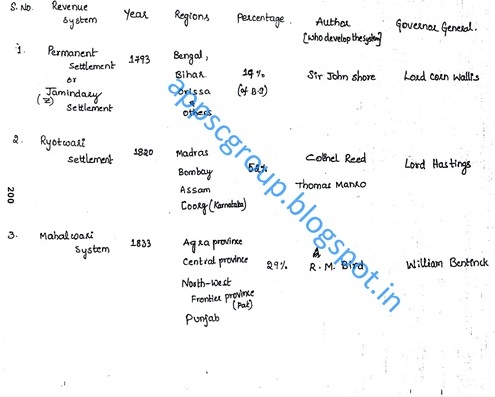 S.No. Revenue System Year Regions Percentage. Author [who develop the system] Governor General.
1. Permanent Settlement or Jamindary (Z) Settlement 1793 Bengal, Bihar Orissa & others 19% (of B-9) Sir John Shore Lord Corn Wallis
2. Ryotwari Settlement 1820 Madras Bombay Assam Coorg (Karnataka) 52% Cothel Reed Thomas Manro Lord Hastings
200
3. Mahalwari System 1833 Agra province Central province North-West Frontier province (Pak) Punjab 29% & R.M. Bird William Bentinck
appscgroup.blogspot.in